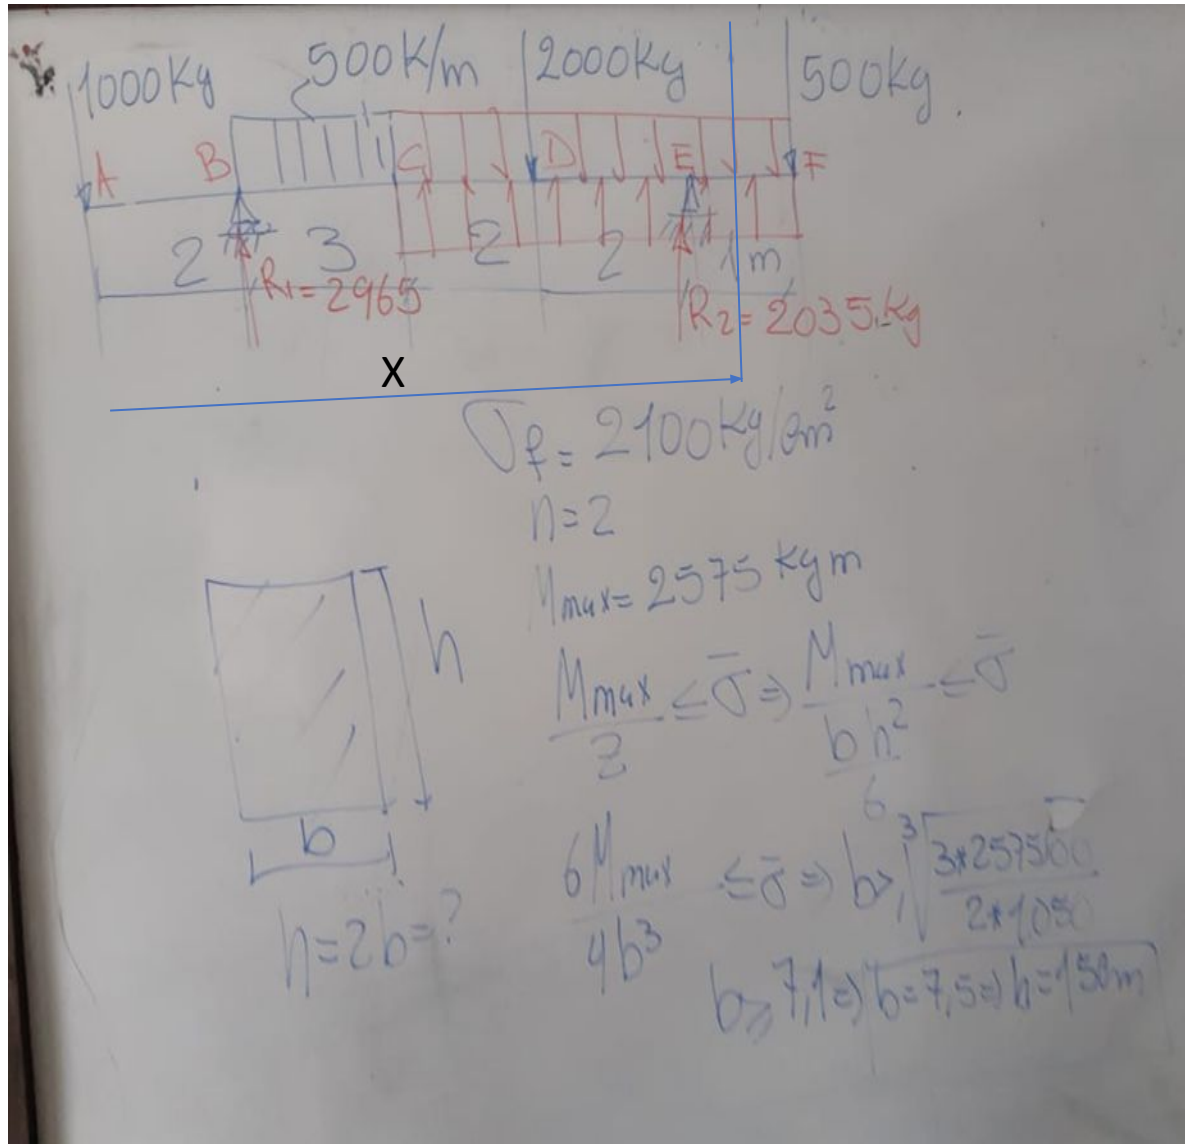 1000Kg 500K/m 2000Kg 500Kg.
A B C D E F
2 3 2 2 1m
R1=2965 R2=2035.Kg
X
σf=2100Kg/cm²
n=2
Mmax=2575 Kgm
Mmax/Z ≤ σ̄ => Mmax/(bh²/6) ≤ σ̄
h
b
6Mmax/4b³ ≤ σ̄ => b≥ ³√(3*257500/2*1050)
h=2b=?
b≥7,1=> b=7,5=> h=15cm